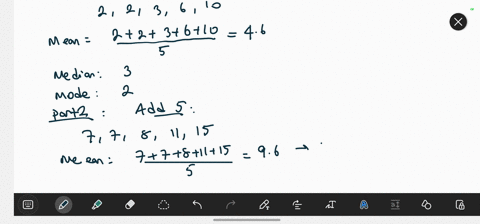 2, 2, 3, 6, 10
Mean = 2+2+3+6+10 / 5 = 4.6
Median: 3
Mode: 2
part2: Add 5:
7, 7, 8, 11, 15
Mean: 7+7+8+11+15 / 5 = 9.6 →